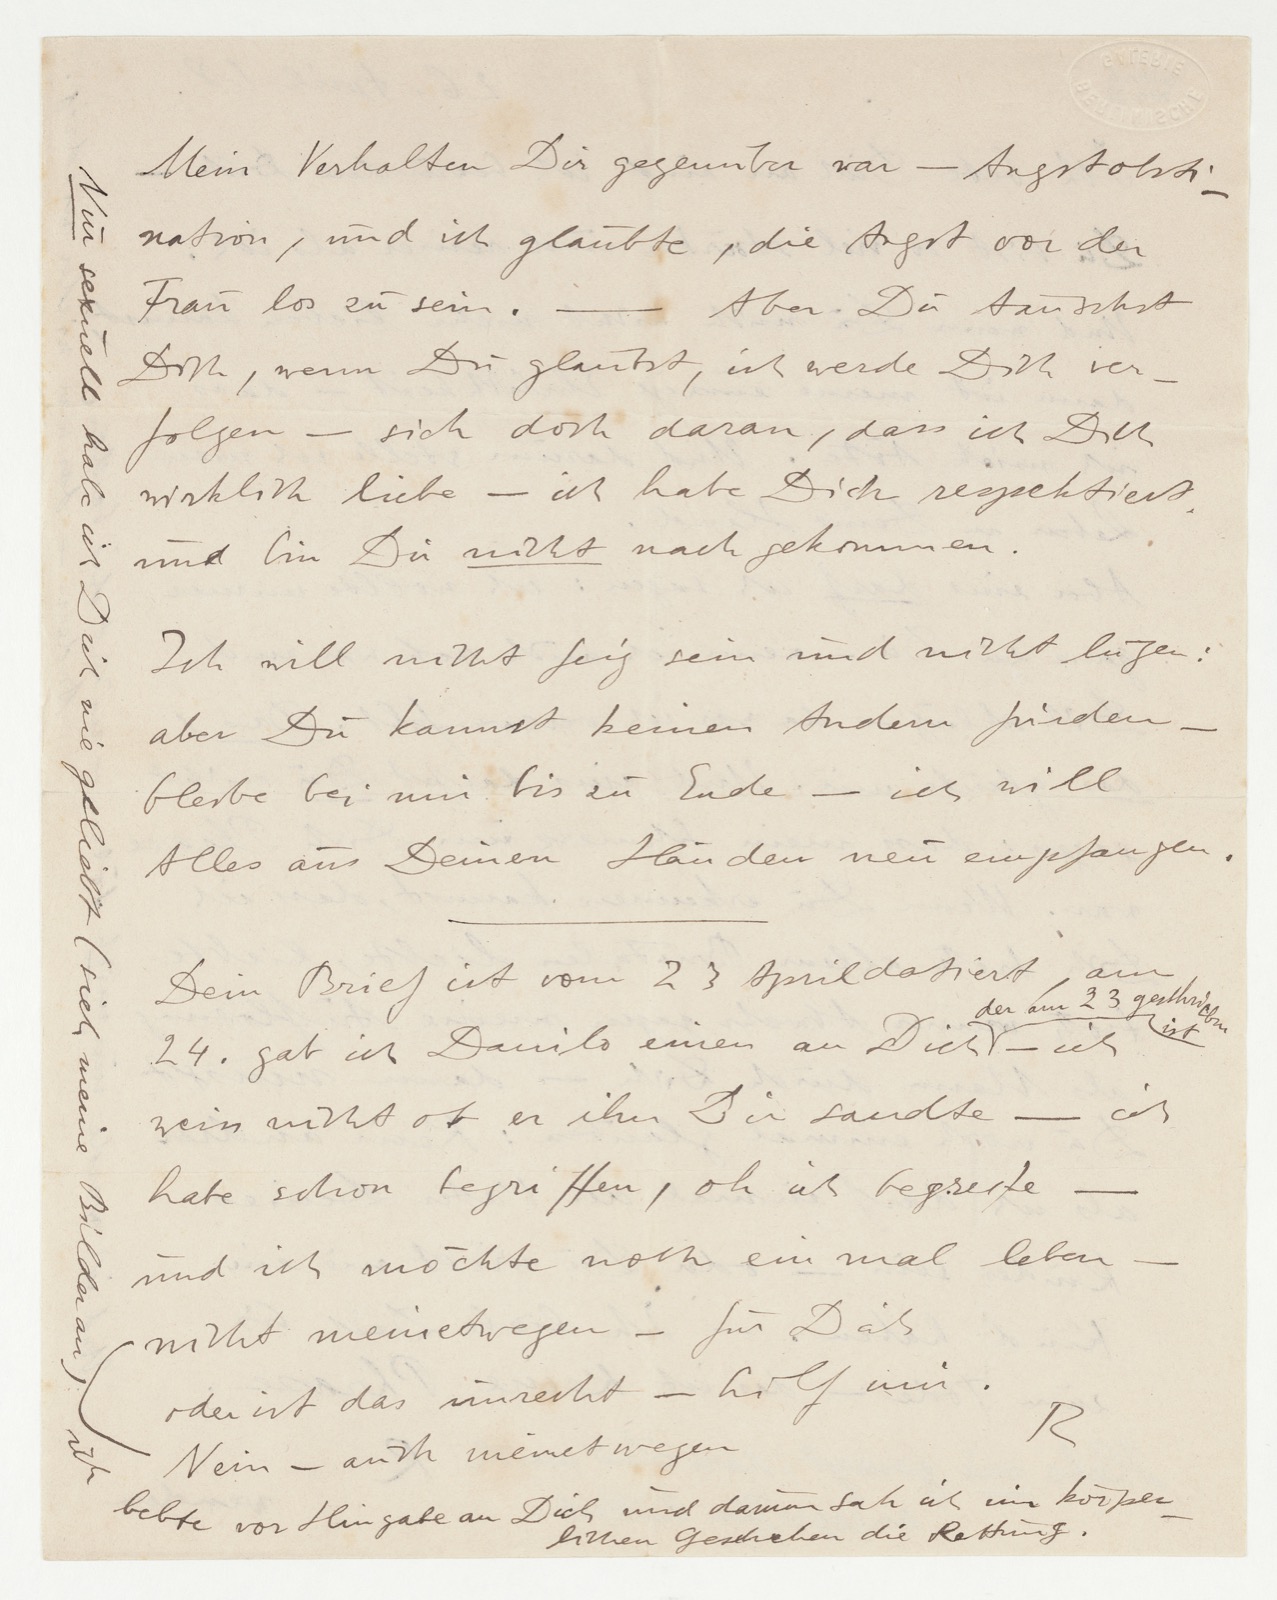 Mein Verhalten Dir gegenüber war — Angstobsti-
nation, und ich glaubte, die Angst vor der
Frau los zu sein. — Aber Du täuschst
Dich, wenn Du glaubst, ich werde Dich ver-
folgen — sieh doch daran, dass ich Dich
wirklich liebe — ich habe Dich respektiert,
und bin Dir nicht nachgekommen.
Ich will nicht feig sein und nicht lügen:
aber Du kannst keinen Andern finden —
bleibe bei mir bis zu Ende — ich will
Alles aus Deinen Händen neu empfangen.
Dein Brief ist vom 23 April datiert, am
der am 23 geschrieben
ist
24. gab ich Danilo einen an Dich — ich
weiss nicht ob er ihn Dir sandte — ich
habe schon begriffen, oh ich begreife —
und ich möchte noch ein mal leben —
nicht meinetwegen — für Dich
oder ist das unrecht — hilf mir.
R
Nein — auch meinetwegen
Nur sexuell habe ich Dich nie geliebt (sieh meine Bilder an) ich
bebte vor Hingabe an Dich und darum sah ich im körper-
lichen Geschehen die Rettung.